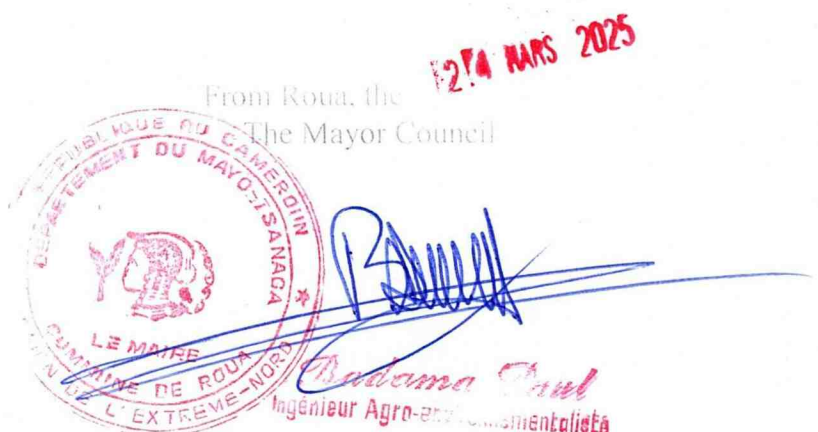 24 MARS 2025
From Roua, the
The Mayor Council
REPUBLIQUE DU CAMEROUN
DEPARTEMENT DU MAYO-TSANAGA
LE MAIRE
COMMUNE DE ROUA
DE L'EXTREME-NORD
Badama Paul
Ingénieur Agro-environnementaliste